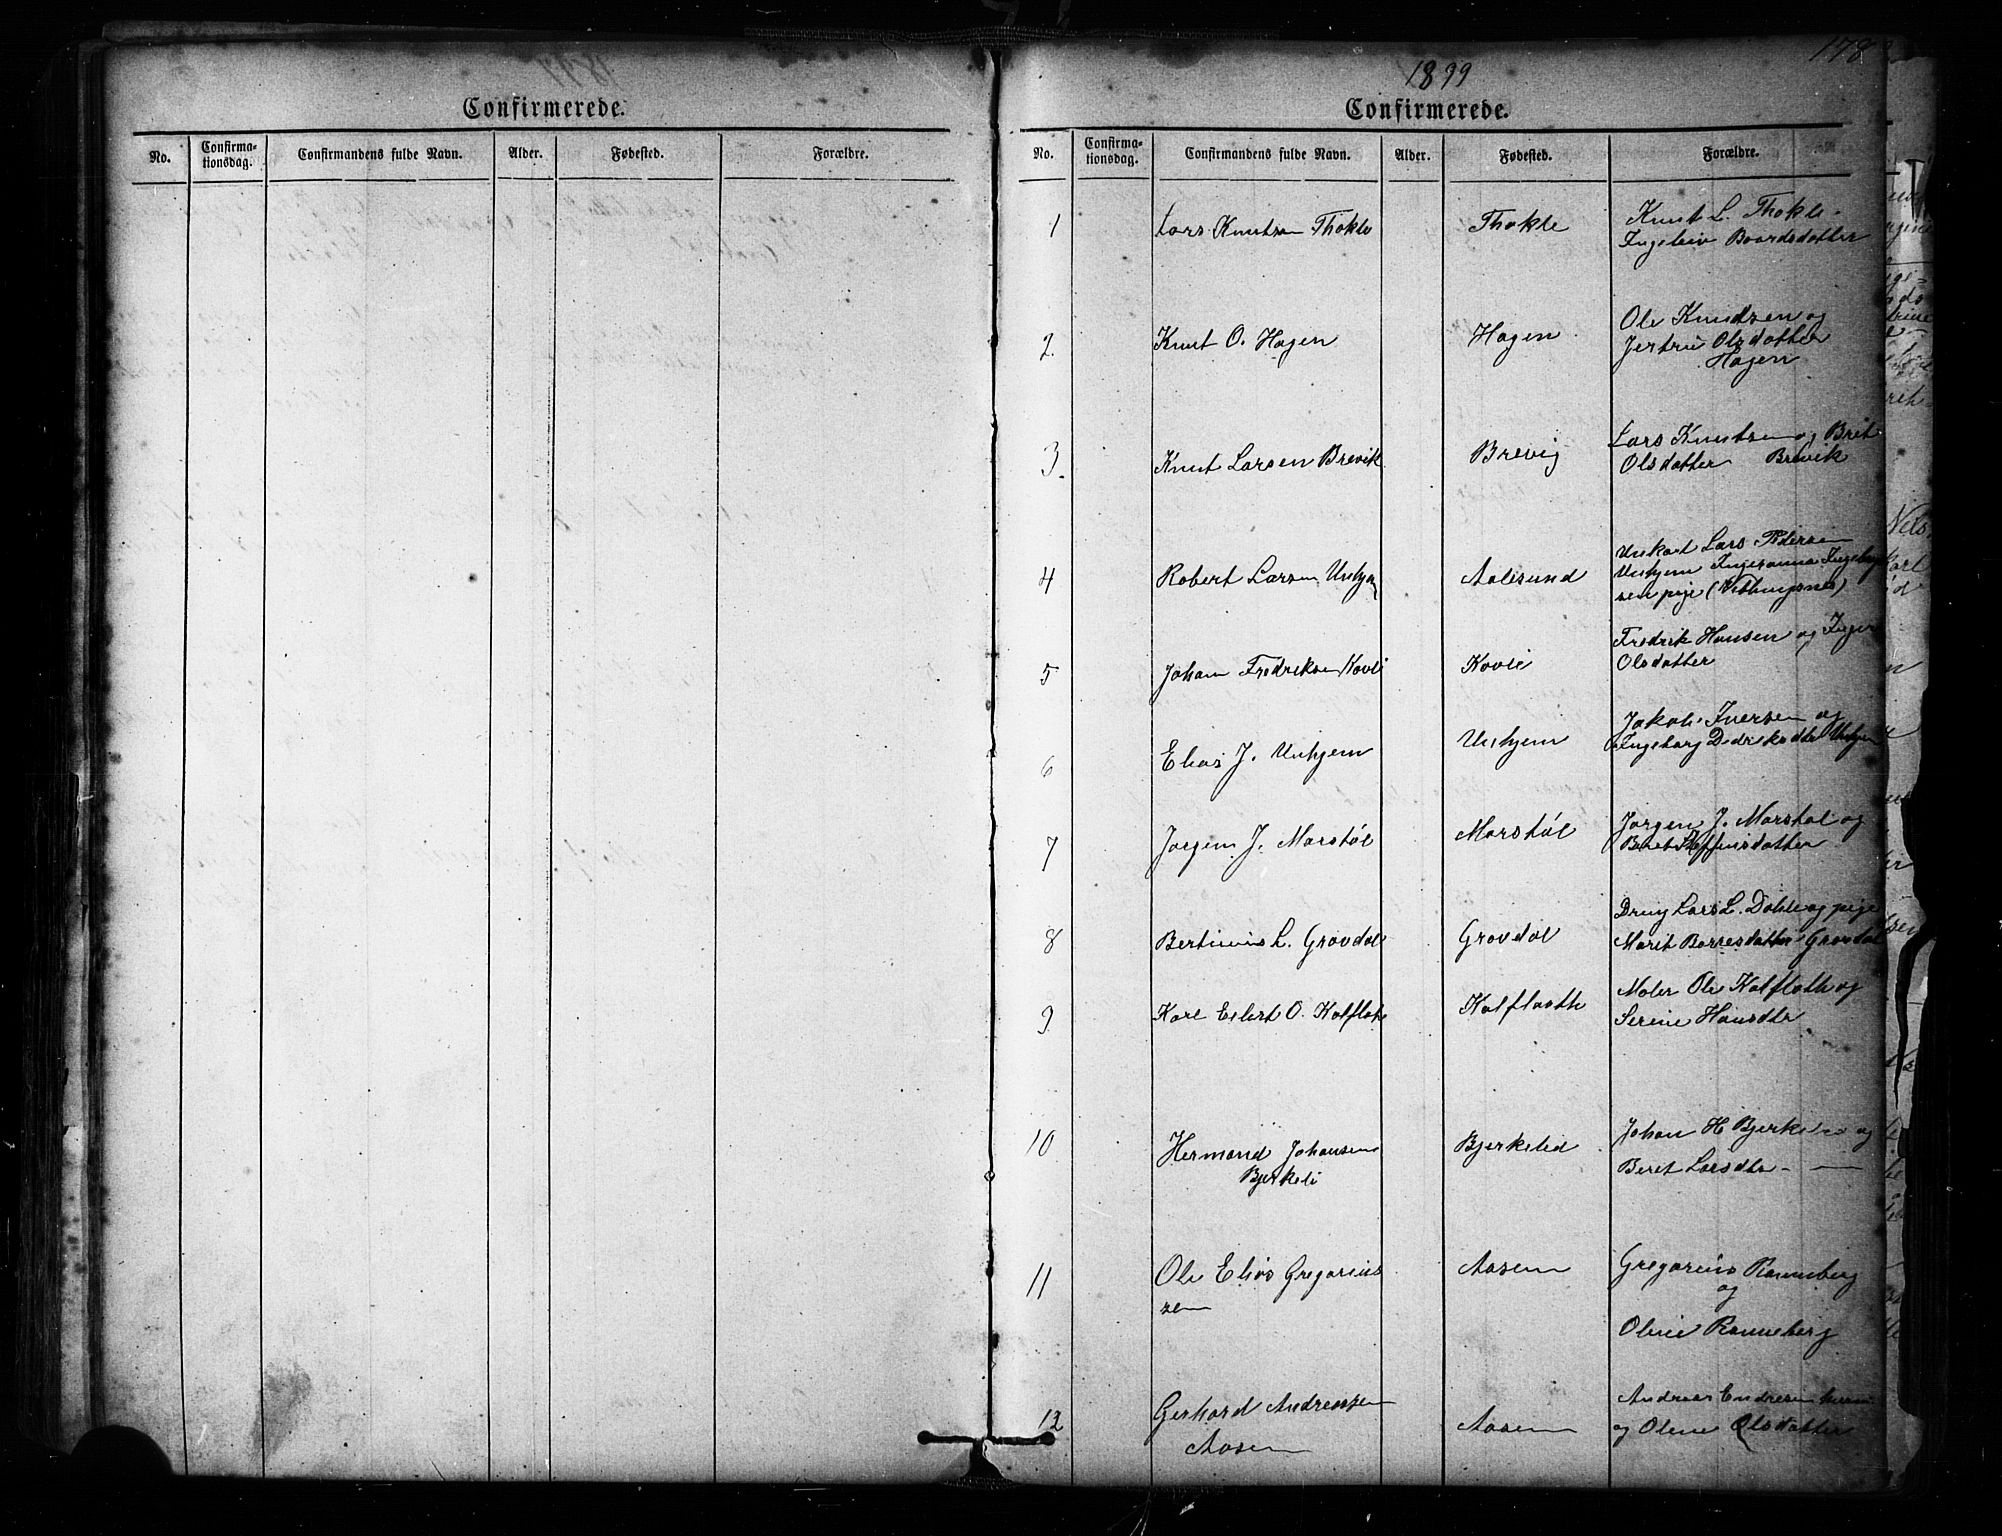 Confirmerede.
No.
Confirma-
tionsdag.
Confirmandens fulde Navn.
Alder.
Fødested.
Forældre.
178
1899
Confirmerede.
No.
Confirma-
tionsdag.
Confirmandens fulde Navn.
Alder.
Fødested.
Forældre.
1
Lars Knutsen Thokle
Thokle
Knut L. Thokle
Ingeleiv Baardsdatter
2
Knut O. Hagen
Hagen
Ole Knudsen og
Jertru Olsdatter
Hagen
3
Knut Larsen Brevik
Brevig
Lars Knutsen og Brit
Olsdatter Brevik
4
Robert Larsen Unhjem
Aalesund
Unkarl Lars Pedersen
Unhjem
pige
5
Johan Fredriksen Kovli
Kovli
Fredrik Hansen og
Olsdatter
6
Elias J. Unhjem
Unhjem
Jakob Iversen og
Ingeborg Unhjem
7
Jørgen J. Marstøl
Marstøl
Jørgen J. Marstøl og
Beret Steffensdatter
8
Bertinus L. Grovdal
Grovdal
Dreng Lars L. Dahle og pige
Marit Grovdal
9
Karl Eilert O. Kalflath
Kalflaath
Maler Ole Kalflath og
Serine Hansdtr
10
Hermand Johansen
Bjerkeli
Bjerkelid
Johan H Bjerkeli og
Beret Larsdtr
11
Ole Elias Gregorius
sen
Aasen
Gregorius Ranneberg
og
Oline Ranneberg
12
Gerhard Andreassen
Aasen
Aasen
Andreas Endresen
og Oline Olsdatter